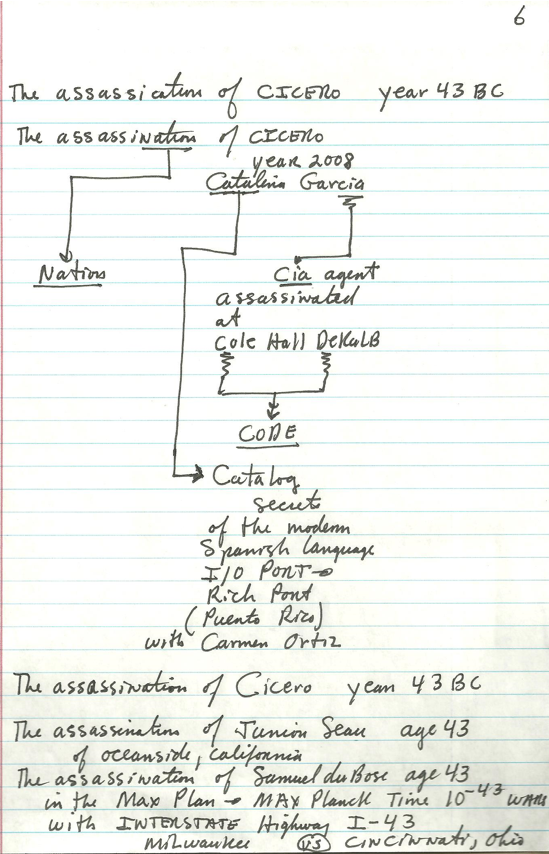 6
The assassication of CICERO year 43 BC
The assassination of CICERO
year 2008
Catalina Garcia
Nation
Cia agent
assassinated
at
Cole Hall DeKalB
CODE
Catalog
secrets
of the modern
Spanish language
I/O PORT
Rich Port
(Puerto Rico)
with Carmen Ortiz
The assassination of Cicero year 43 BC
The assassination of Junior Seau age 43
of oceanside, california
The assassination of Samuel duBose age 43
in the Max Plan MAX Planck Time 10-43 WARS
with INTERSTATE Highway I-43
Milwaukee VS CINCINNATI, Ohio